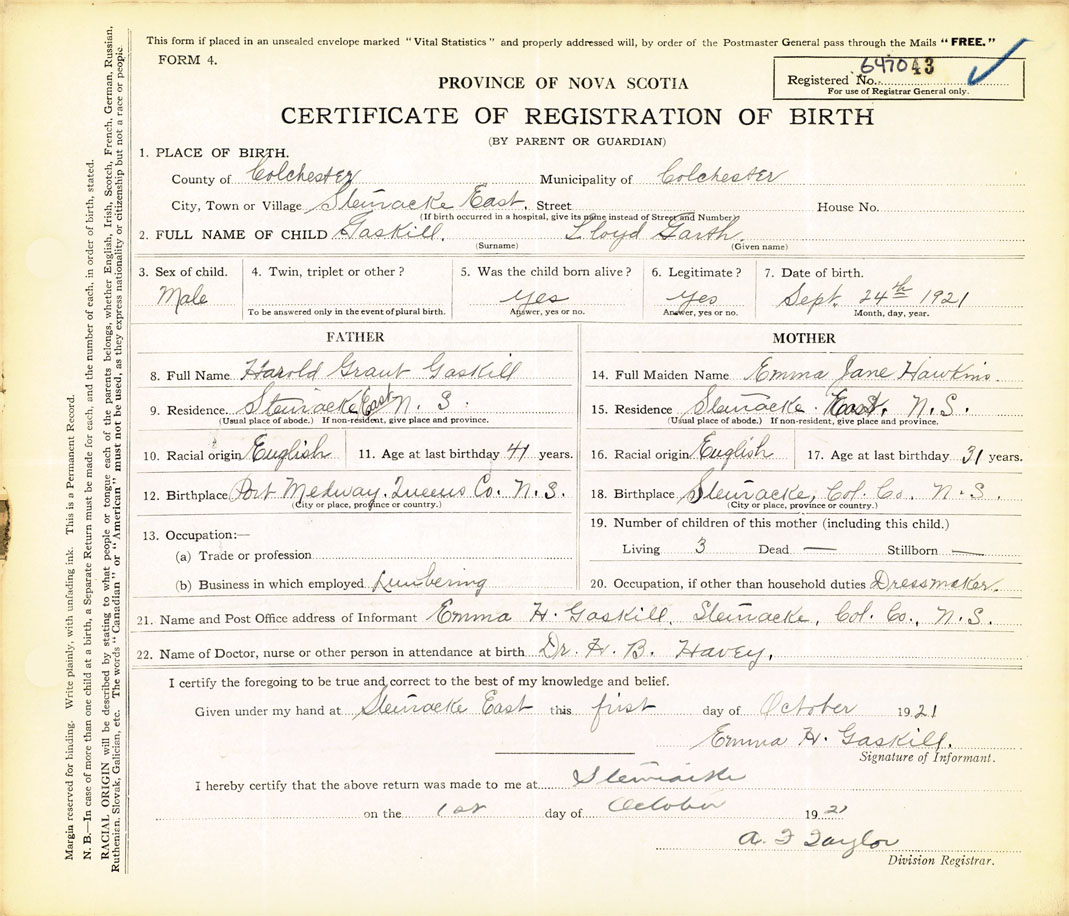 This form if placed in an unsealed envelope marked "Vital Statistics" and properly addressed will, by order of the Postmaster General pass through the Mails "FREE."
FORM 4.
PROVINCE OF NOVA SCOTIA
Registered No. 647043
For use of Registrar General only.
CERTIFICATE OF REGISTRATION OF BIRTH
(BY PARENT OR GUARDIAN)
1. PLACE OF BIRTH.
County of Colchester Municipality of Colchester
City, Town or Village Stewiacke East. Street House No.
(If birth occurred in a hospital, give its name instead of Street and Number)
2. FULL NAME OF CHILD Gaskill. Lloyd Garth.
(Surname) (Given name)
3. Sex of child. 4. Twin, triplet or other? 5. Was the child born alive? 6. Legitimate? 7. Date of birth.
Male yes yes Sept. 24th 1921
To be answered only in the event of plural birth. Answer, yes or no. Answer, yes or no. Month, day, year.
FATHER MOTHER
8. Full Name Harold Grant Gaskill 14. Full Maiden Name Emma Jane Hawkins.
9. Residence Stewiacke East N. S. 15. Residence Stewiacke East, N. S.
(Usual place of abode.) If non-resident, give place and province. (Usual place of abode.) If non-resident, give place and province.
10. Racial origin English 11. Age at last birthday 41 years. 16. Racial origin English 17. Age at last birthday 31 years.
12. Birthplace Port Medway. Queens Co. N. S. 18. Birthplace Stewiacke, Col. Co. N. S.
(City or place, province or country.) (City or place, province or country.)
13. Occupation:— 19. Number of children of this mother (including this child.)
(a) Trade or profession Living 3 Dead — Stillborn —
(b) Business in which employed Lumbering 20. Occupation, if other than household duties Dressmaker.
21. Name and Post Office address of Informant Emma H. Gaskill, Stewiacke, Col. Co., N. S.
22. Name of Doctor, nurse or other person in attendance at birth Dr. H. B. Havey.
I certify the foregoing to be true and correct to the best of my knowledge and belief.
Given under my hand at Stewiacke East this first day of October 1921
Emma H. Gaskill.
Signature of Informant.
I hereby certify that the above return was made to me at Stewiacke
on the 1st day of October 1921
A. F Taylor
Division Registrar.
Margin reserved for binding. Write plainly, with unfading ink. This is a Permanent Record.
N. B.—In case of more than one child at a birth, a Separate Return must be made for each, and the number of each, in order of birth, stated.
RACIAL ORIGIN will be described by stating to what people or tongue each of the parents belongs, whether English, Irish, Scotch, French, German, Russian,
Ruthenian, Slovak, Galician, etc. The words "Canadian" or "American" must not be used, as they express nationality or citizenship but not a race or people.